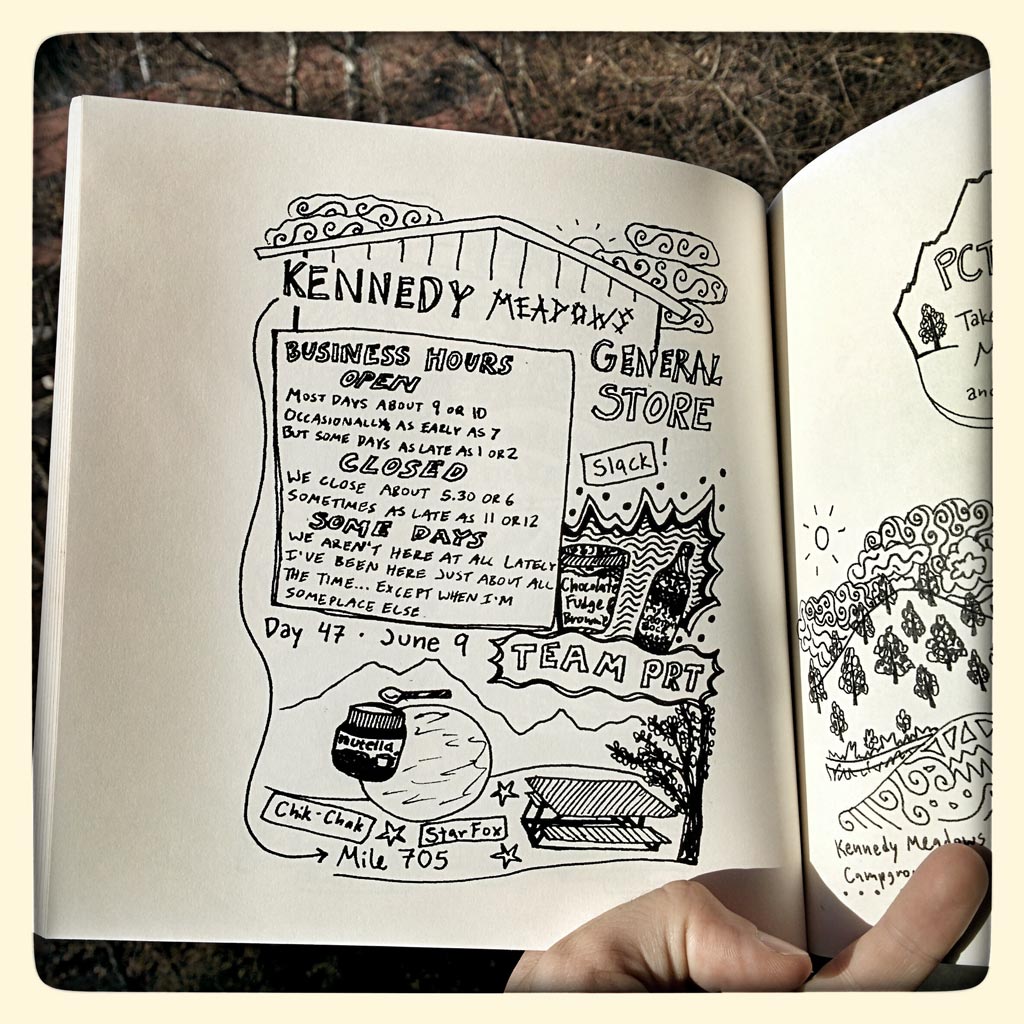 KENNEDY MEADOWS
GENERAL
STORE
BUSINESS HOURS
OPEN
MOST DAYS ABOUT 9 OR 10
OCCASIONALLY AS EARLY AS 7
BUT SOME DAYS AS LATE AS 1 OR 2
CLOSED
WE CLOSE ABOUT 5.30 OR 6
SOMETIMES AS LATE AS 11 OR 12
SOME DAYS
WE AREN'T HERE AT ALL LATELY
I'VE BEEN HERE JUST ABOUT ALL
THE TIME... EXCEPT WHEN I'M
SOMEPLACE ELSE
Slack!
Chocolate
Fudge
Brownie
Day 47 · June 9
TEAM PRT
nutella
Chik-Chak
Star Fox
Mile 705
PCT
Take
M
and
Kennedy Meadows
Campgro